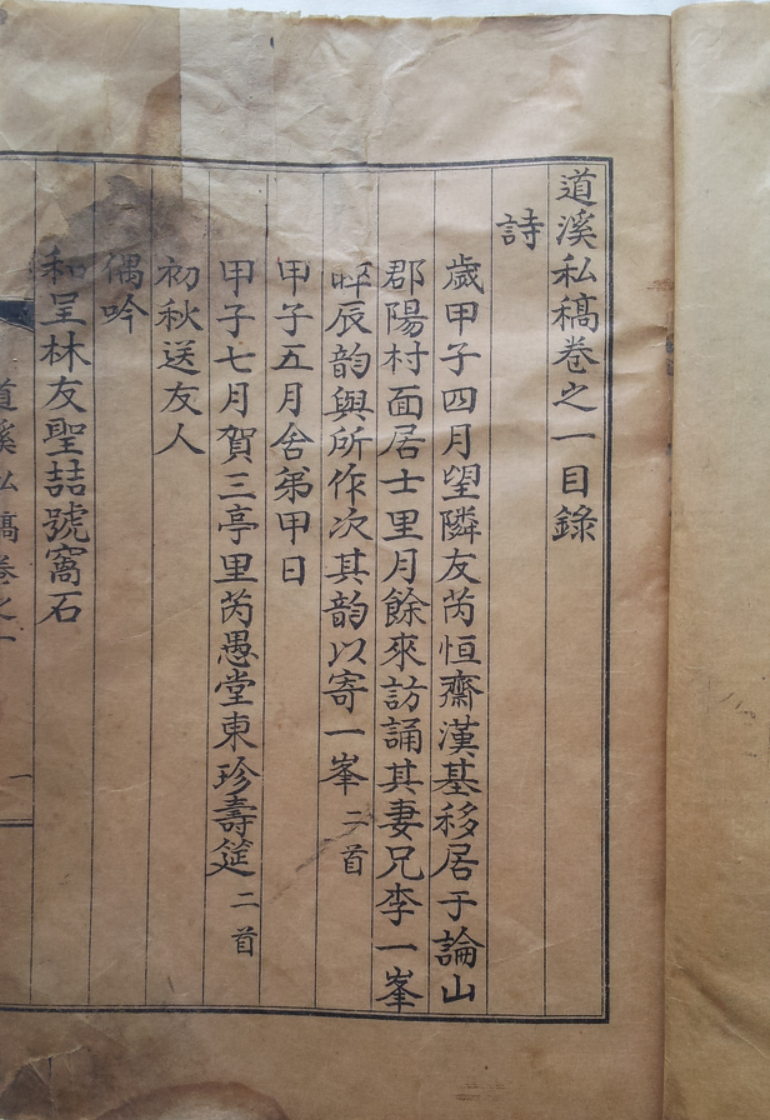 道溪私稿卷之一目錄
詩
歲甲子四月望隣友芮恒齋漢基移居于論山
郡陽村面居士里月餘來訪誦其妻兄李一峯
晬辰韵與所作次其韵以寄一峯 二首
甲子五月舍弟甲日
甲子七月賀三亭里芮愚堂東珍壽筵 二首
初秋送友人
偶吟
和呈林友聖喆號窩石
道溪私稿卷之一
一